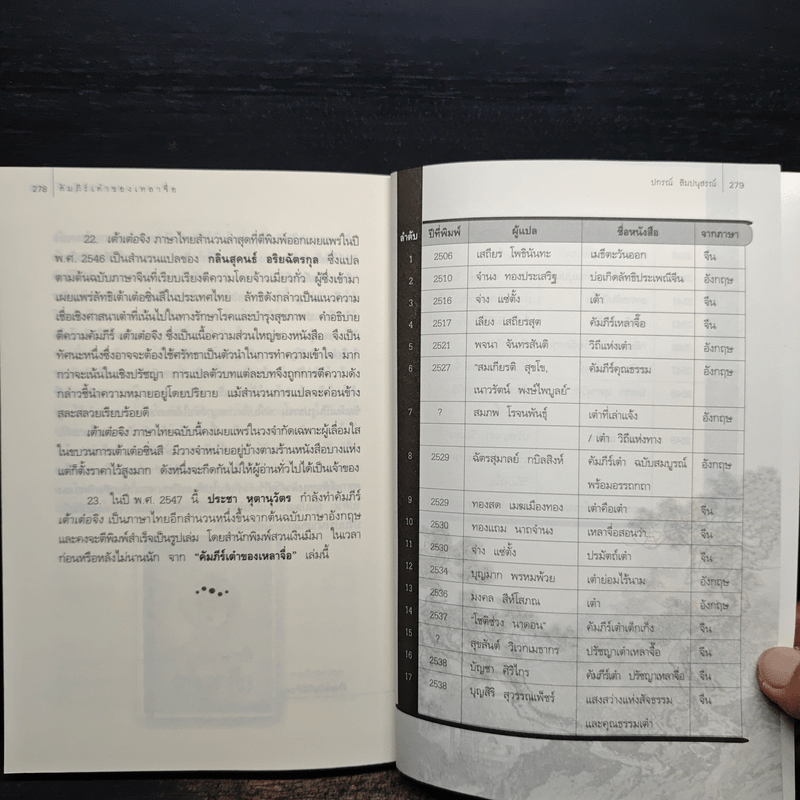 278 คัมภีร์เต๋าของเหลาจื่อ
22. เต้าเต๋อจิง ภาษาไทยสำนวนล่าสุดที่ตีพิมพ์ออกเผยแพร่ในปี
พ.ศ. 2546 เป็นสำนวนแปลของ กลิ่นสุคนธ์ อริยฉัตรกุล ซึ่งแปล
ตามต้นฉบับภาษาจีนที่เรียบเรียงตีความโดยจ้าวเมี่ยวกั่ว ผู้ซึ่งเข้ามา
เผยแพร่ลัทธิเต้าเต๋อซินสีในประเทศไทย ลัทธิดังกล่าวเป็นแนวความ
เชื่อเชิงศาสนาเต๋าที่เน้นไปในทางรักษาโรคและบำรุงสุขภาพ คำอธิบาย
ตีความคัมภีร์ เต้าเต๋อจิง ซึ่งเป็นเนื้อความส่วนใหญ่ของหนังสือ จึงเป็น
ทัศนะหนึ่งซึ่งอาจจะต้องใช้ศรัทธาเป็นตัวนำในการทำความเข้าใจ มาก
กว่าจะเน้นในเชิงปรัชญา การแปลตัวบทแต่ละบทจึงถูกการตีความดัง
กล่าวชี้นำความหมายอยู่โดยปริยาย แม้สำนวนการแปลจะค่อนข้าง
สละสลวยเรียบร้อยดี
เต้าเต๋อจิง ภาษาไทยฉบับนี้คงเผยแพร่ในวงจำกัดเฉพาะผู้เลื่อมใส
ในขบวนการเต้าเต๋อซินสี มีวางจำหน่ายอยู่บ้างตามร้านหนังสือบางแห่ง
แต่ก็ตั้งราคาไว้สูงมาก ดังหนึ่งจะกีดกันไม่ให้ผู้อ่านทั่วไปได้เป็นเจ้าของ
23. ในปี พ.ศ. 2547 นี้ ประชา หุตานุวัตร กำลังทำคัมภีร์
เต้าเต๋อจิง เป็นภาษาไทยอีกสำนวนหนึ่งขึ้นจากต้นฉบับภาษาอังกฤษ
และคงจะตีพิมพ์สำเร็จเป็นรูปเล่ม โดยสำนักพิมพ์สวนเงินมีมา ในเวลา
ก่อนหรือหลังไม่นานนัก จาก "คัมภีร์เต๋าของเหลาจื่อ" เล่มนี้
ปกรณ์ ลิมปนุสรณ์ 279
ลำดับ ปีที่พิมพ์ ผู้แปล ชื่อหนังสือ จากภาษา
1 2506 เสถียร โพธินันทะ เมธีตะวันออก จีน
2 2510 จำนง ทองประเสริฐ บ่อเกิดลัทธิประเพณีจีน อังกฤษ
3 2516 จ่าง แซ่ตั้ง เต๋า จีน
4 2517 เลียง เสถียรสุต คัมภีร์เหลาจื๊อ จีน
5 2521 พจนา จันทรสันติ วิถีแห่งเต๋า อังกฤษ
6 2527 "สมเกียรติ สุขโข, คัมภีร์คุณธรรม อังกฤษ
เนาวรัตน์ พงษ์ไพบูลย์"
7 ? สมภพ โรจนพันธุ์ เต๋าที่เล่าแจ้ง อังกฤษ
/ เต๋า วิถีแห่งทาง
8 2529 ฉัตรสุมาลย์ กบิลสิงห์ คัมภีร์เต๋า ฉบับสมบูรณ์ อังกฤษ
พร้อมอรรถกถา
9 2529 ทองสด เมฆเมืองทอง เต๋าคือเต๋า จีน
10 2530 ทองแถม นาถจำนง เหลาจื่อสอนว่า... จีน
11 2530 จ่าง แซ่ตั้ง ปรมัตถ์เต๋า จีน
12 2534 บุญมาก พรหมพ้วย เต๋าย่อมไร้นาม อังกฤษ
13 2536 มงคล สีห์โสภณ เต๋า อังกฤษ
14 2537 "โชติช่วง นาดอน" คัมภีร์เต๋าเต็กเก็ง จีน
15 ? สุขสันต์ วิเวกเมธากร ปรัชญาเต๋าเหลาจื๊อ จีน
16 2538 บัญชา ศิริไกร คัมภีร์เต๋า ปรัชญาเหลาจื๊อ จีน
17 2538 บุญสิริ สุวรรณเพ็ชร์ แสงสว่างแห่งสัจธรรม จีน
และคุณธรรมเต๋า